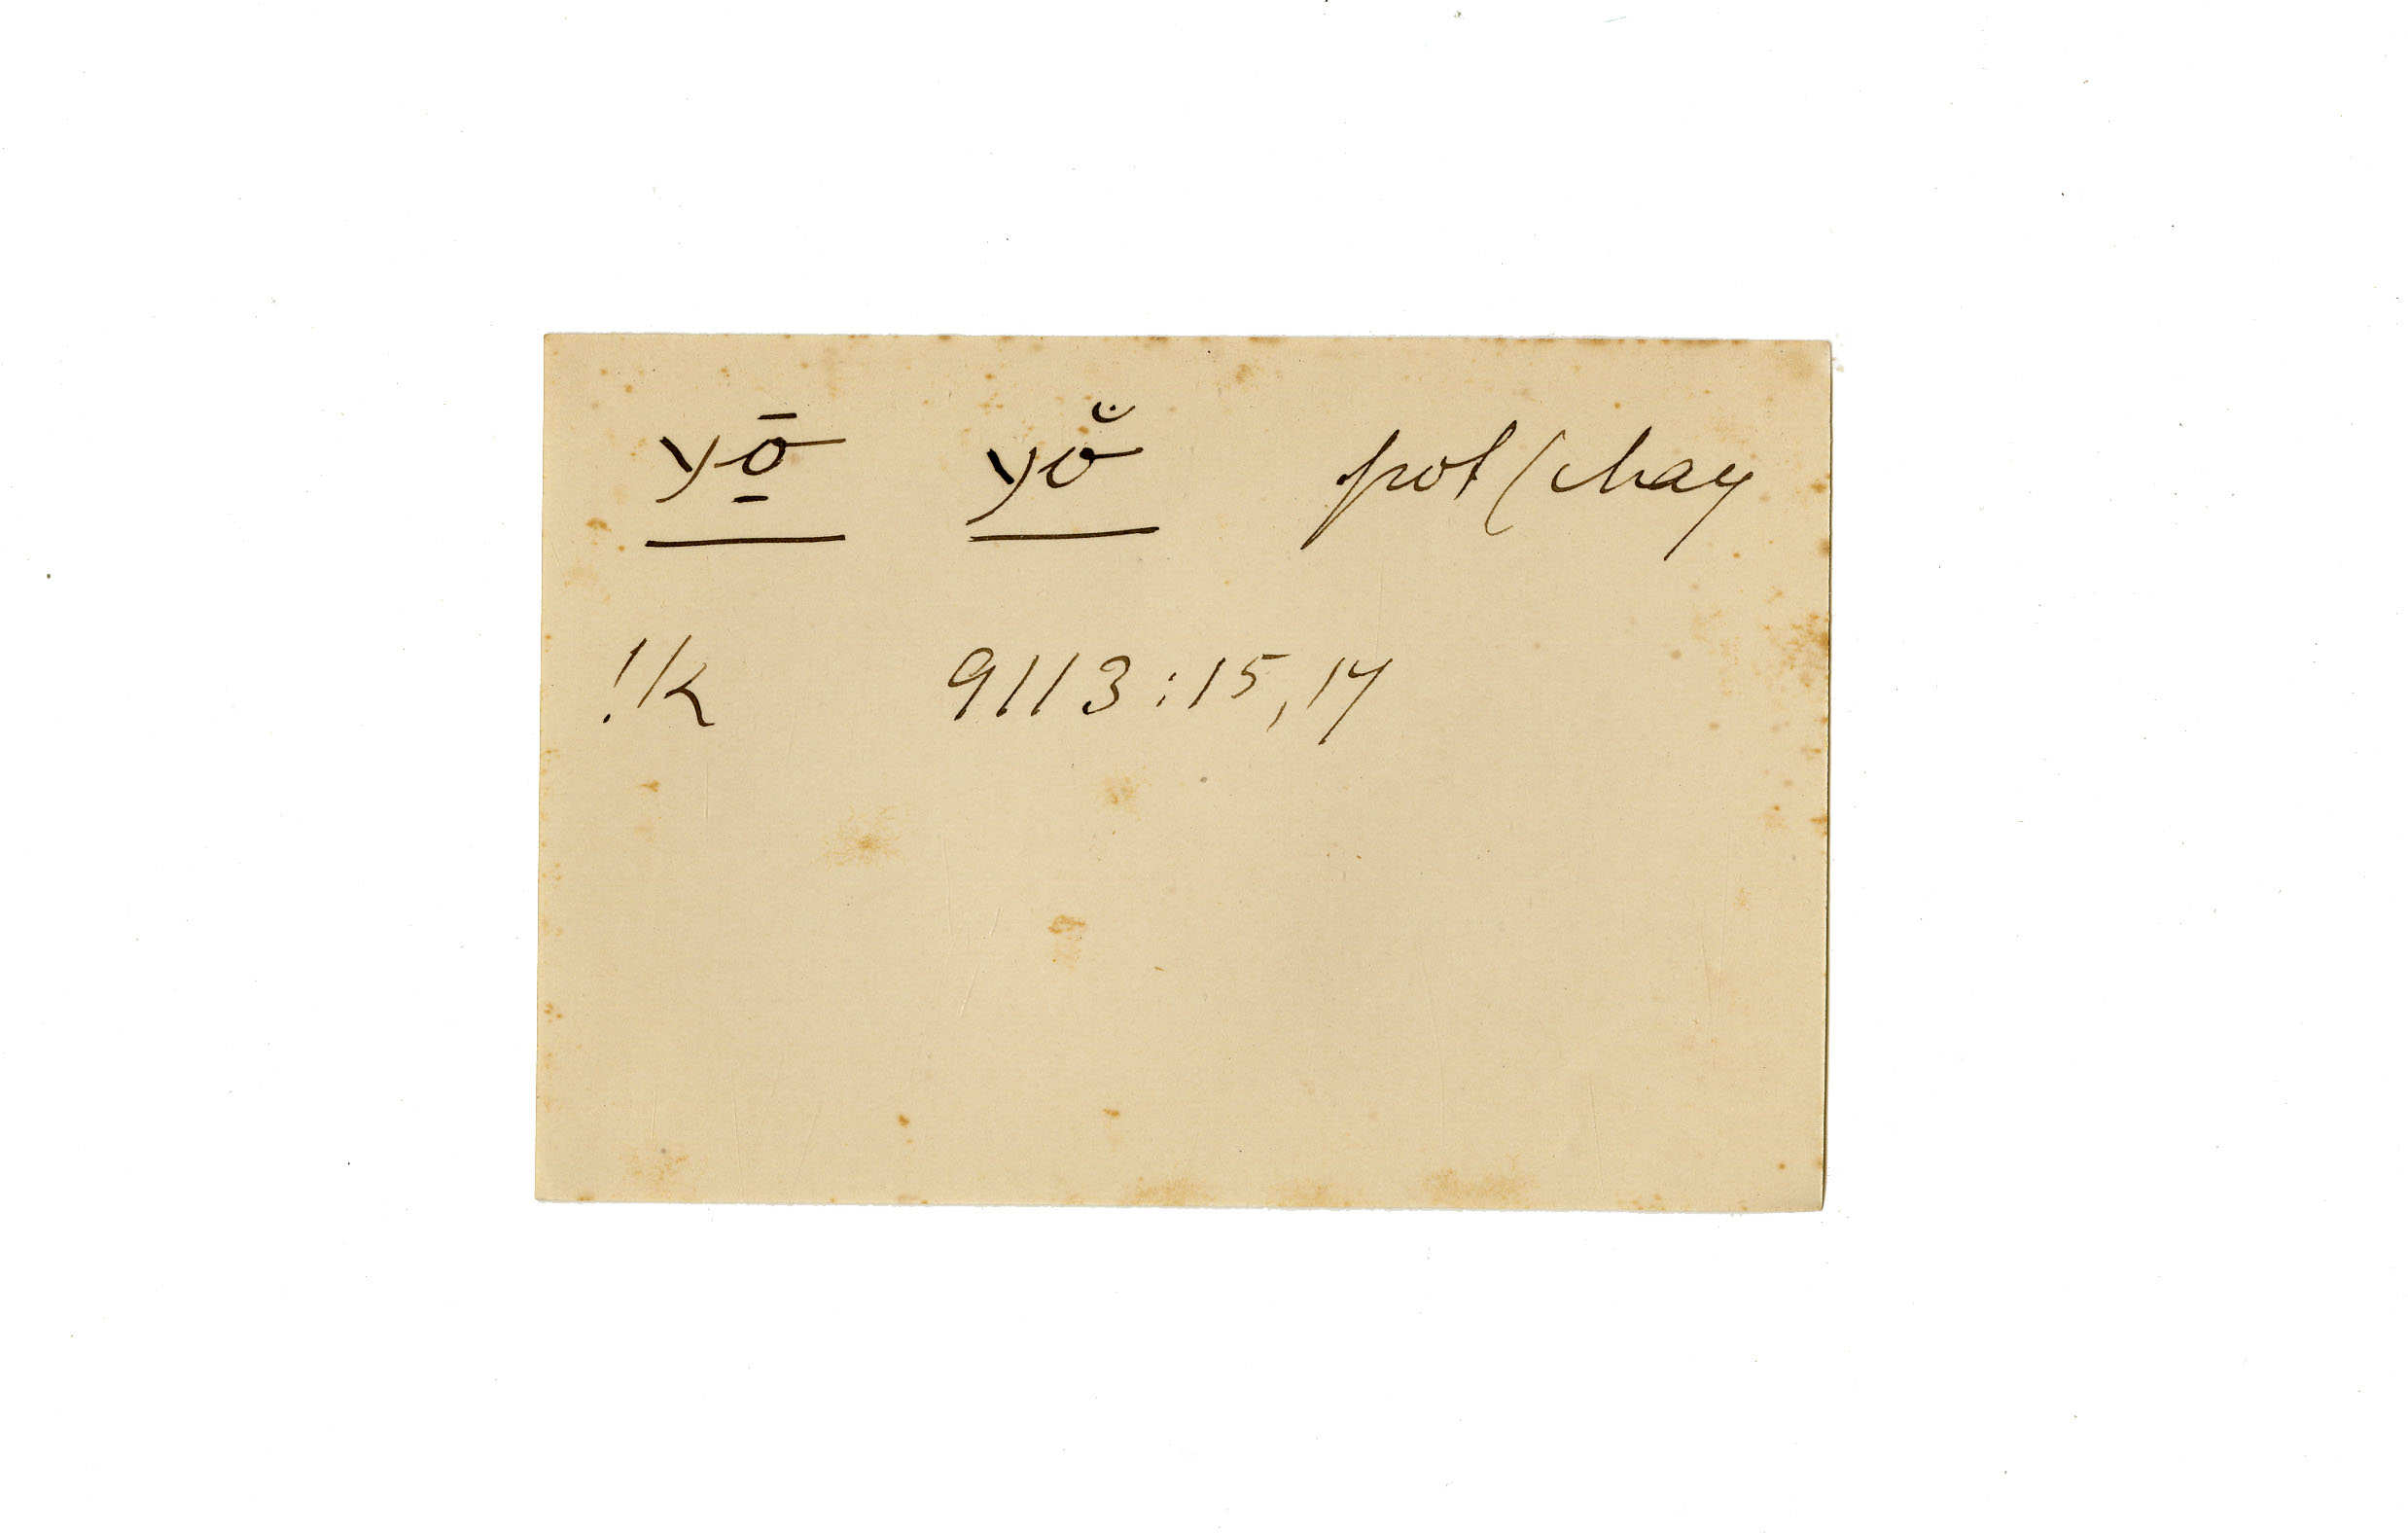 yō̠ yŏ̇ pot (chay
!k 9113:15,17